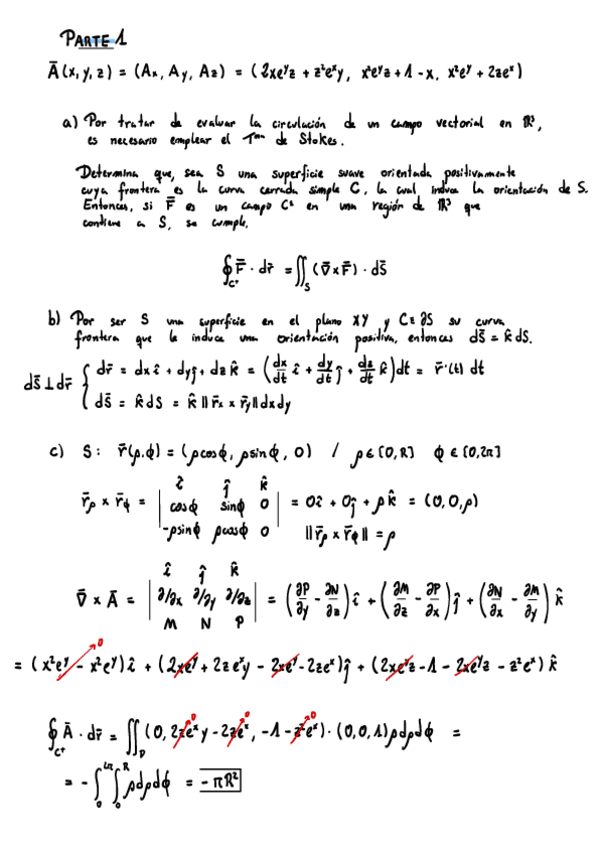 PARTE 1
Ā(x, y, z) = (Ax, Ay, Az) = (2xeʸz + z²eˣy, x²eʸz + 1 - x, x²eʸ + 2zeˣ)
a) Por tratar de evaluar la circulación de un campo vectorial en ℝ³,
es necesario emplear el Tᵐᵃ de Stokes.
Determina que, sea S una superficie suave orientada positivamente
cuya frontera es la curva cerrada simple C, la cual induce la orientación de S.
Entonces, si F̄ es un campo C¹ en una región de ℝ³ que
contiene a S, se cumple,
∮_C⁺ F̄ · dr̄ = ∬_S (∇̄ x F̄) · dS̄
b) Por ser S una superficie en el plano XY y C≡∂S su curva
frontera que le induce una orientación positiva, entonces dS̄ = k̂ dS.
dS̄ ⊥ dr̄ { dr̄ = dx î + dy ĵ + dz k̂ = (dx/dt î + dy/dt ĵ + dz/dt k̂) dt = r̄'(t) dt
dS̄ = k̂ dS = k̂ ||r̄x x r̄y|| dxdy
c) S: r̄(ρ,ϕ) = (ρcosϕ, ρsinϕ, 0) / ρ ∈ [0, R] ϕ ∈ [0, 2π]
r̄ρ x r̄ϕ = | î ĵ k̂ | cosϕ sinϕ 0 | -ρsinϕ ρcosϕ 0 | = 0î + 0ĵ + ρk̂ = (0, 0, ρ)
||r̄ρ x r̄ϕ|| = ρ
∇̄ x Ā = | î ĵ k̂ | ∂/∂x ∂/∂y ∂/∂z | M N P | = (∂P/∂y - ∂N/∂z) î + (∂M/∂z - ∂P/∂x) ĵ + (∂N/∂x - ∂M/∂y) k̂
= (x²eʸ - x²eʸ) î + (2xeʸ + 2zeˣy - 2xeʸ - 2zeˣ) ĵ + (2xeʸz - 1 - 2xeʸz - z²eˣ) k̂
∮_C⁺ Ā · dr̄ = ∬_D (0, 2zeˣy - 2zeˣ, -1 - z²eˣ) · (0, 0, 1) ρdρdϕ =
= - ∫₀^2π ∫₀^R ρdρdϕ = -πR²